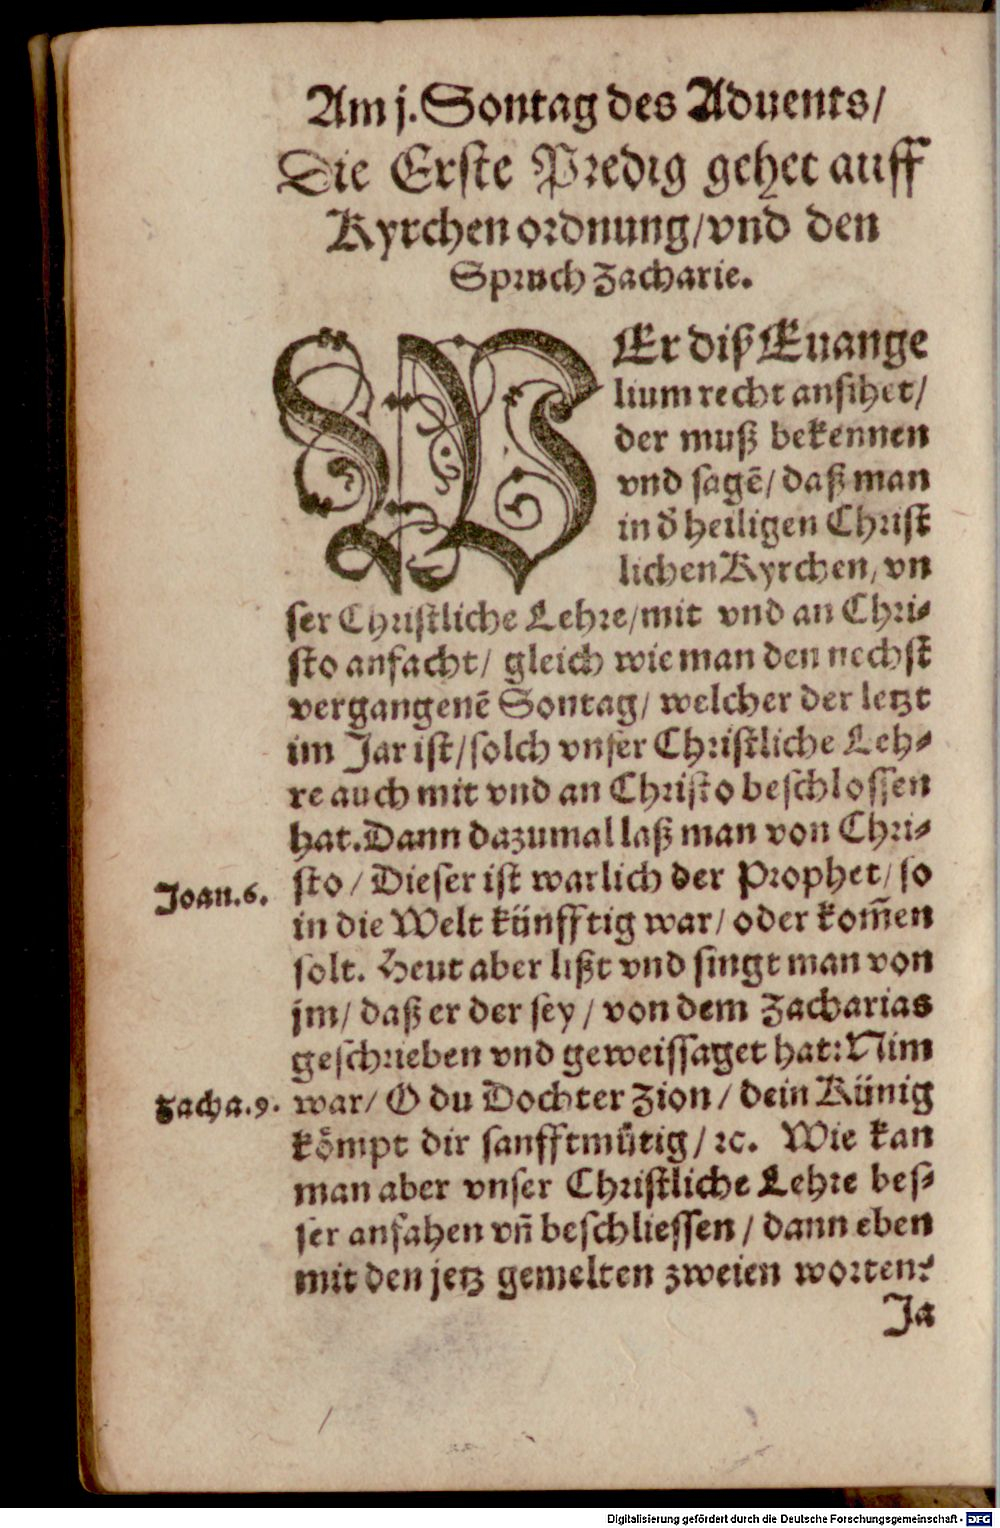 Am j. Sontag des Aduents/
Die Erste Predig gehet auff
Kyrchen ordnung/ vnd den
Spruch Zacharie.
WEr diß Euange
lium recht ansihet/
der muß bekennen
vnd sagẽ/ daß man
in d̓ heiligen Christ
lichen Kyrchen, vn
ser Christliche Lehre/ mit vnd an Chri⸗
sto anfacht/ gleich wie man den nechst
vergangenẽ Sontag/ welcher der letzt
im Jar ist/ solch vnser Christliche Leh⸗
re auch mit vnd an Christo beschlossen
hat. Dann dazumal laß man von Chri⸗
Joan. 6. sto/ Dieser ist warlich der Prophet/ so
in die Welt künfftig war/ oder kom̃en
solt. Heut aber lißt vnd singt man von
jm/ daß er der sey/ von dem Zacharias
geschrieben vnd geweissaget hat: Nim
Zacha. 9. war/ O du Dochter Zion/ dein Künig
kömpt dir sanfftmütig/ ꝛc. Wie kan
man aber vnser Christliche Lehre bes⸗
ser anfahen vñ beschliessen/ dann eben
mit den jetz gemelten zweien worten?
Ja
Digitalisierung gefördert durch die Deutsche Forschungsgemeinschaft - DFG